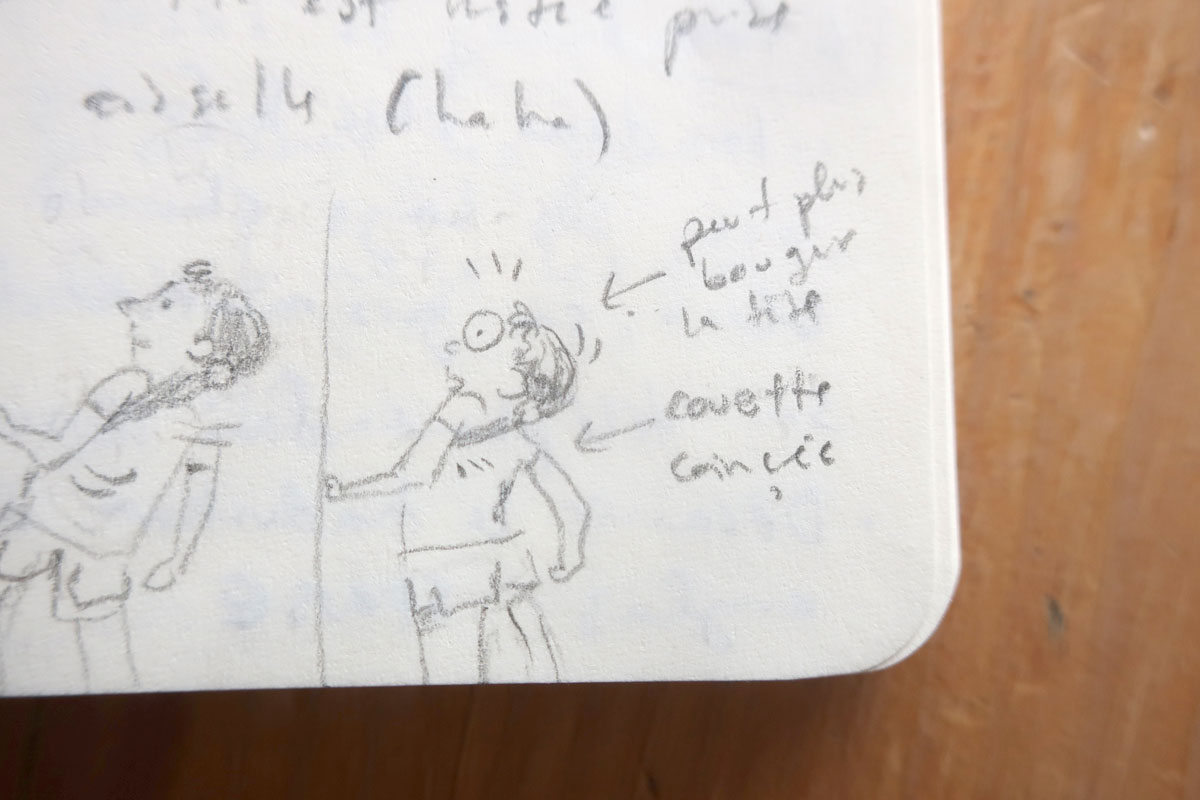 est restée prise
(haha)
peut plus
bouger
la tête
couette
coinçée